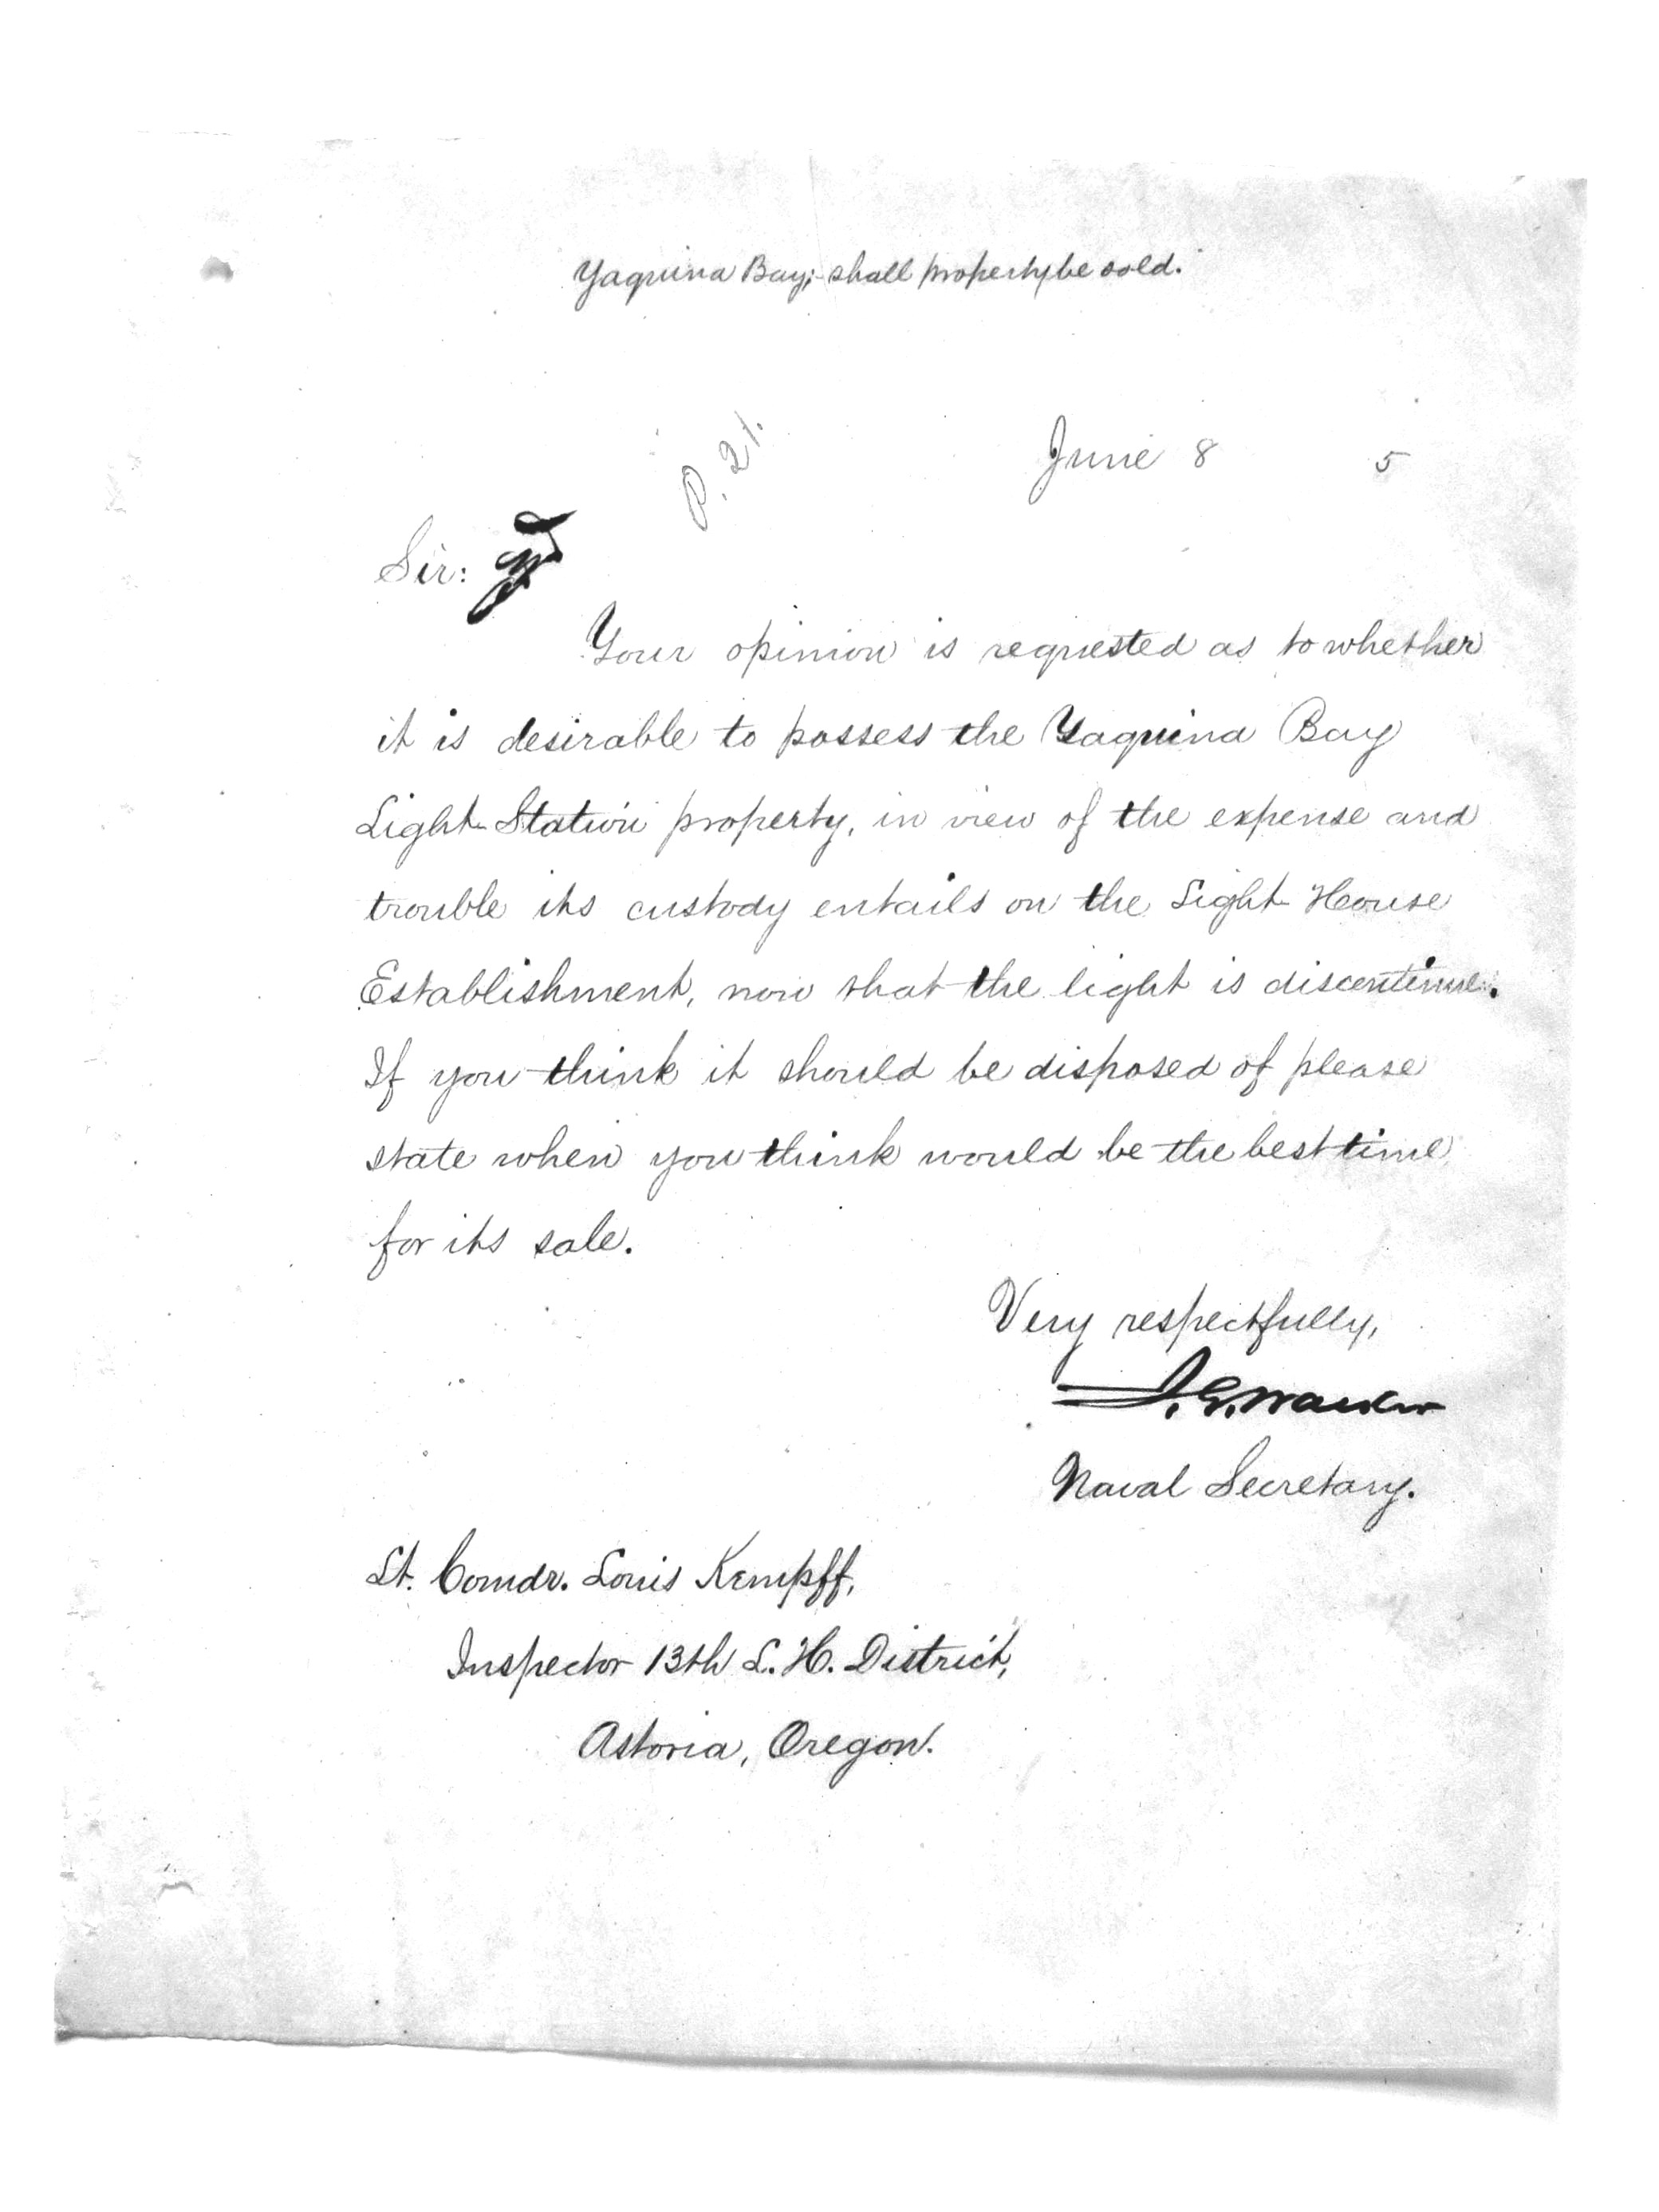 Yaquina Bay; shall property be sold.
P. 21.
June 8 5
Sir:
Your opinion is requested as to whether
it is desirable to possess the Yaquina Bay
Light-Station property, in view of the expense and
trouble its custody entails on the Light-House
Establishment, now that the light is discontinue.
If you think it should be disposed of please
state when you think would be the best time
for its sale.
Very respectfully,
Naval Secretary.
Lt. Comdr. Louis Kempff,
Inspector 13th L. H. District,
Astoria, Oregon.